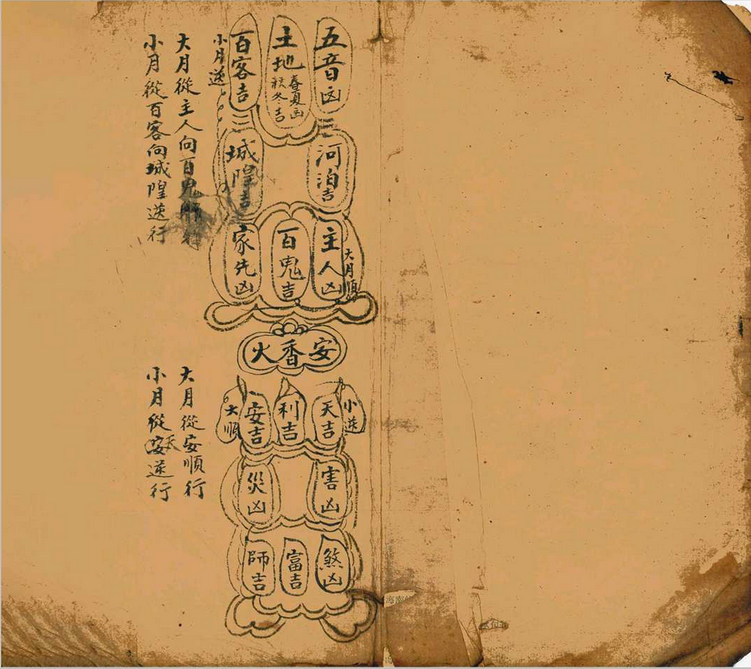 五音凶
土地
春夏凶
秋冬吉
百客吉
小月逆
河泊吉
城隍吉
大月順
主人凶
百鬼吉
家先凶
大月從主人向百鬼行
小月從百客向城隍逆行
安香火
小逆
天吉
利吉
安吉
大順
害凶
災凶
煞凶
富吉
師吉
大月從安順行
小月從天逆行